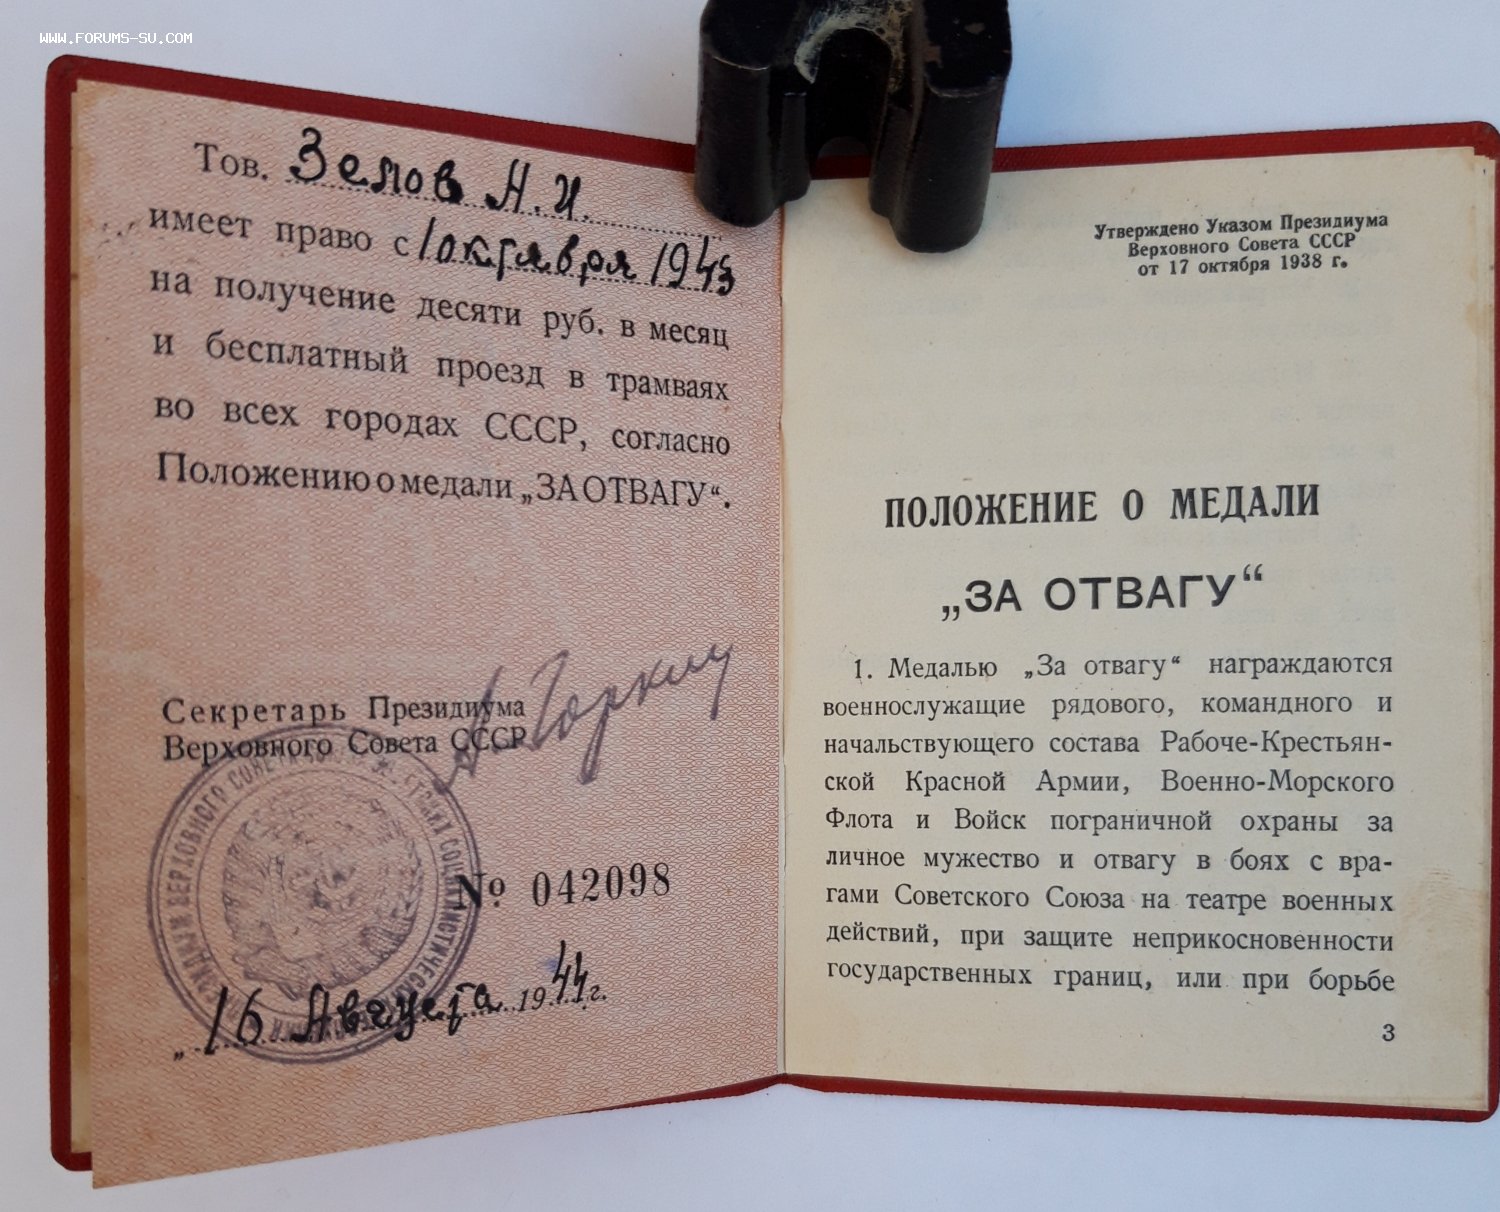 WWW.FORUMS-SU.COM
Тов. Земов Н.И.
имеет право с 1 октября 1943
на получение десяти руб. в месяц
и бесплатный проезд в трамваях
во всех городах СССР, согласно
Положению о медали „ЗА ОТВАГУ“.
Секретарь Президиума
Верховного Совета СССР
А Горкин
№ 042098
„ 16 Августа 1944 г.
Утверждено Указом Президиума
Верховного Совета СССР
от 17 октября 1938 г.
ПОЛОЖЕНИЕ О МЕДАЛИ
„ЗА ОТВАГУ“
1. Медалью „За отвагу“ награждаются
военнослужащие рядового, командного и
начальствующего состава Рабоче-Крестьян-
ской Красной Армии, Военно-Морского
Флота и Войск пограничной охраны за
личное мужество и отвагу в боях с вра-
гами Советского Союза на театре военных
действий, при защите неприкосновенности
государственных границ, или при борьбе
3